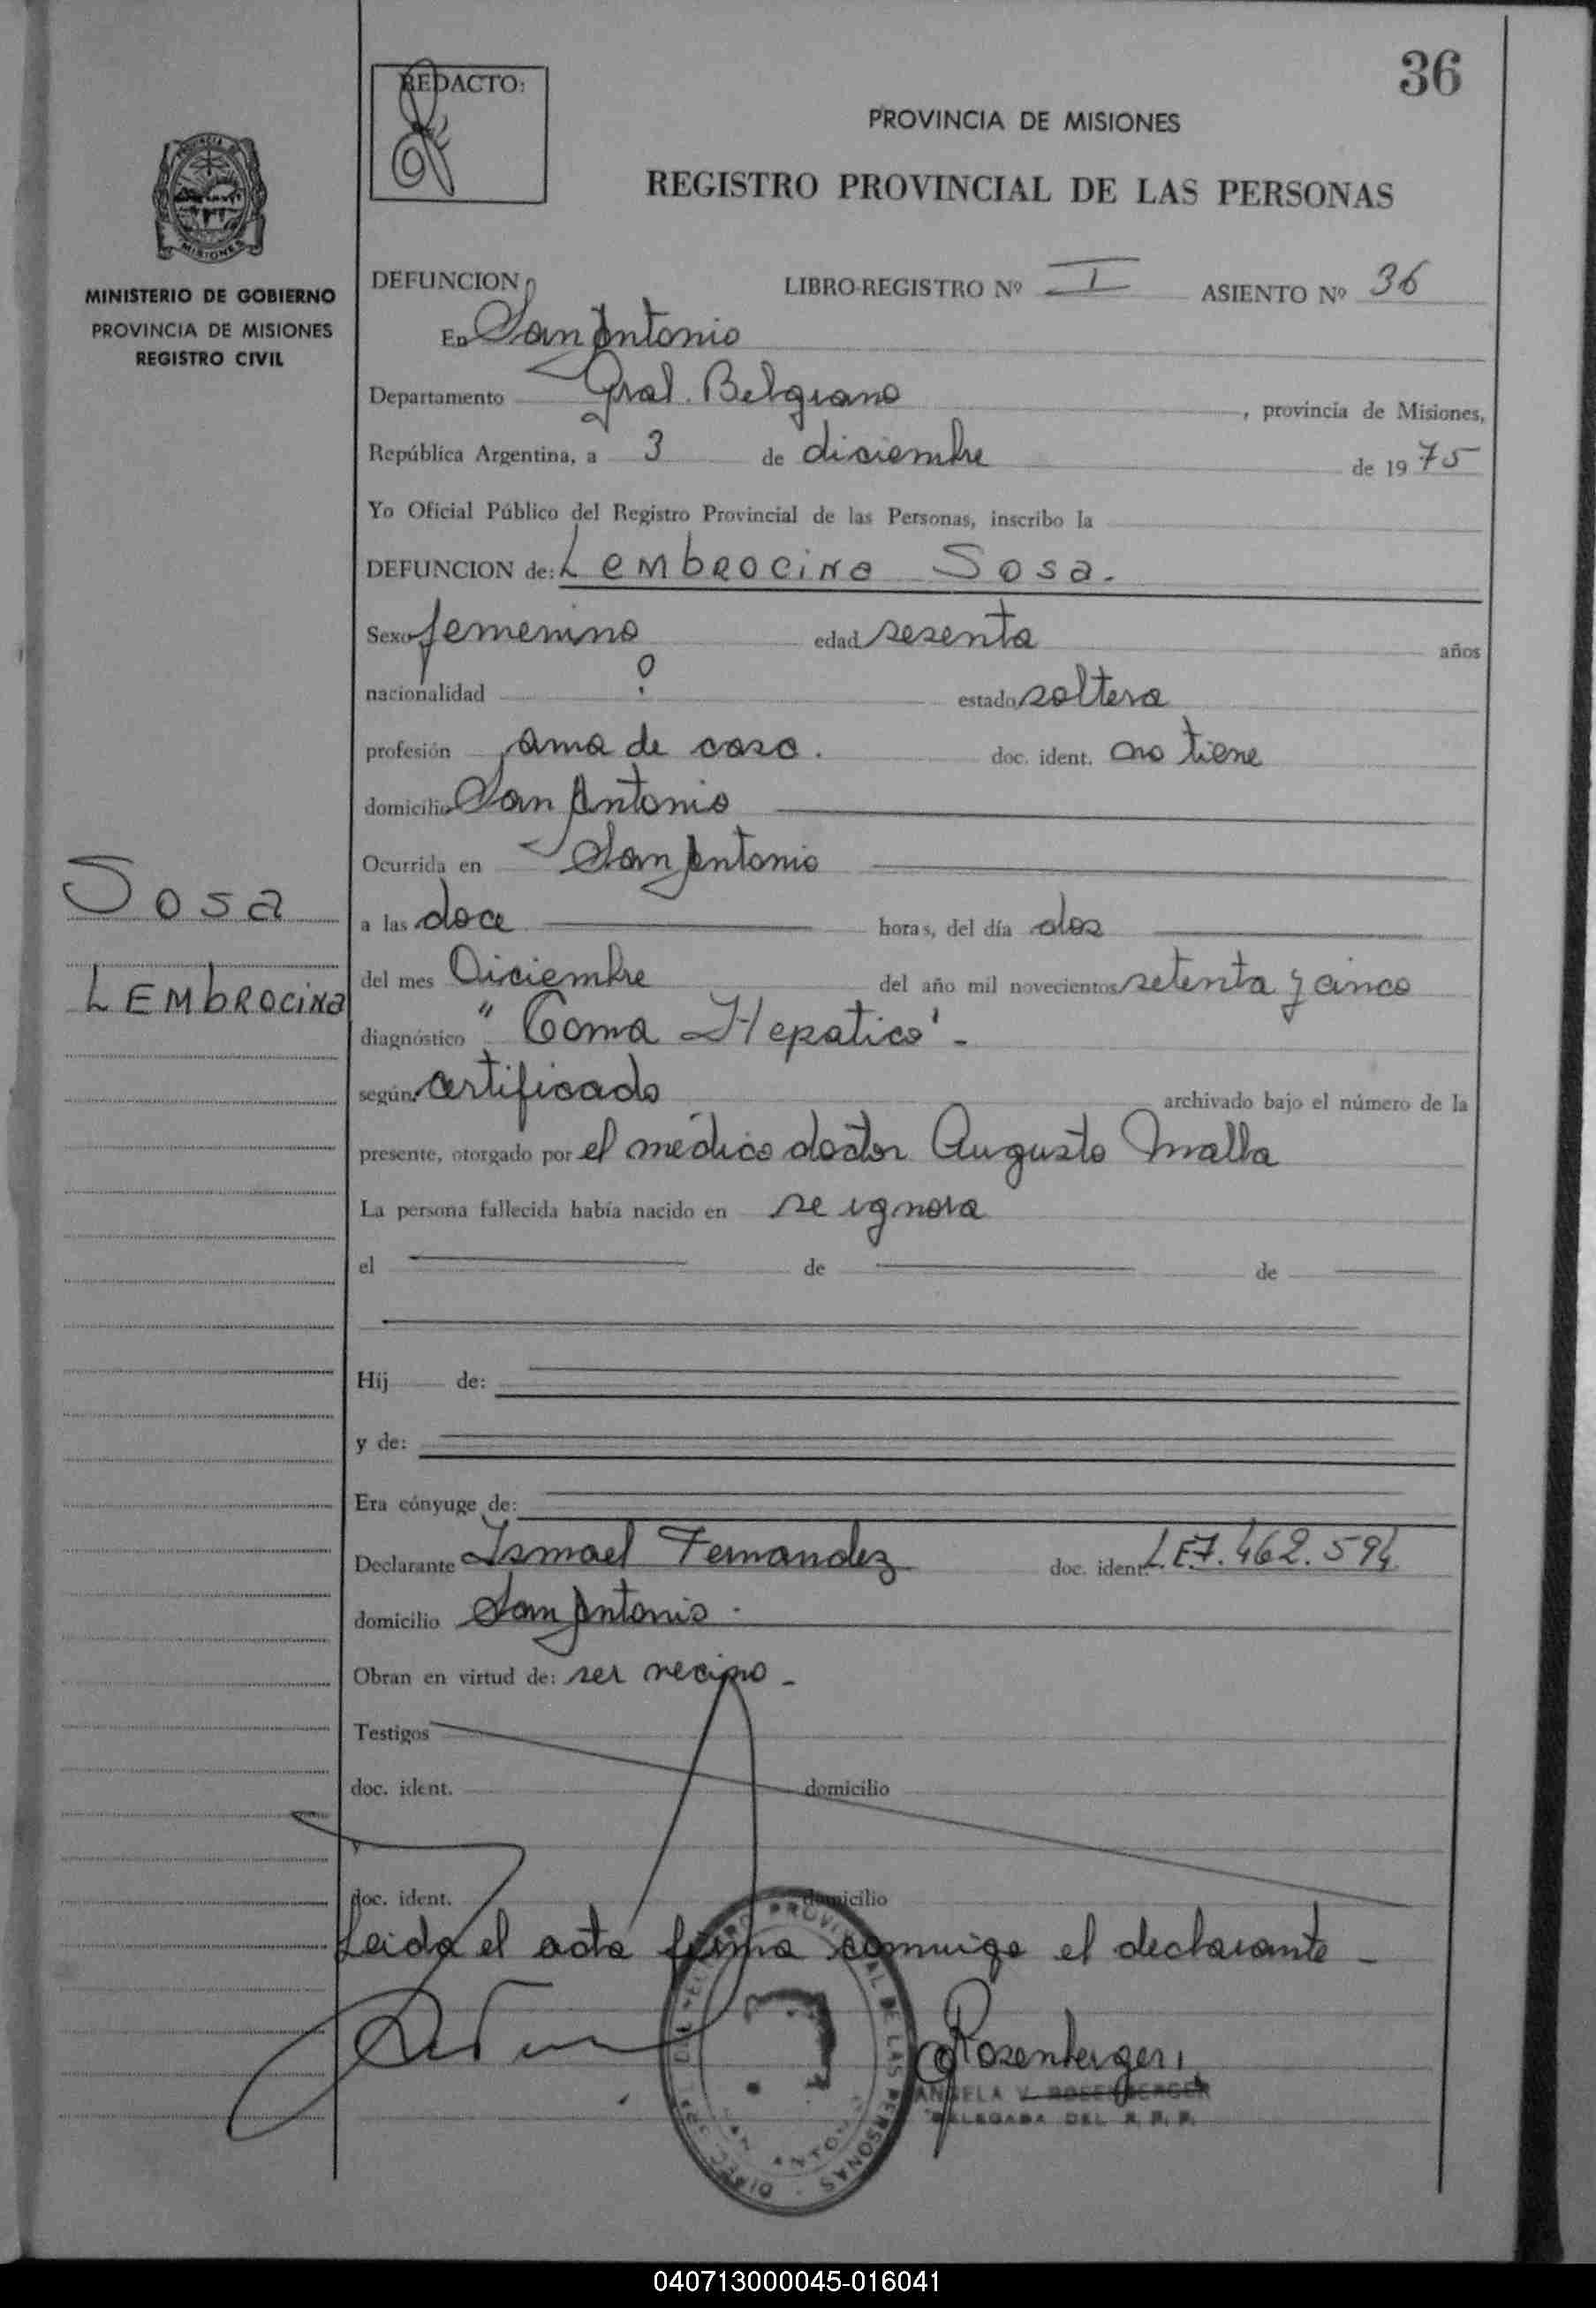 36
REDACTO:
PROVINCIA DE MISIONES
REGISTRO PROVINCIAL DE LAS PERSONAS
MISIONES
MINISTERIO DE GOBIERNO
PROVINCIA DE MISIONES
REGISTRO CIVIL
DEFUNCION LIBRO-REGISTRO Nº I ASIENTO Nº 36
En San Antonio
Departamento Gral. Belgrano, provincia de Misiones,
República Argentina, a 3 de diciembre de 1975
Yo Oficial Público del Registro Provincial de las Personas, inscribo la
DEFUNCION de: Lembrocina Sosa.
Sexo femenino edad sesenta años
nacionalidad ? estado soltera
profesión ama de casa. doc. ident. no tiene
domicilio San Antonio
Ocurrida en San Antonio
Sosa
Lembrocina
a las doce horas, del día dos
del mes Diciembre del año mil novecientos setenta y cinco
diagnóstico "Coma Hepatico".
según certificado archivado bajo el número de la
presente, otorgado por el médico doctor Augusto Malla
La persona fallecida había nacido en se ignora
el de de
Hij de:
y de:
Era cónyuge de:
Declarante Ismael Fernandez doc. ident. L.E 7.462.594
domicilio San Antonio.
Obran en virtud de: ser vecino-
Testigos
doc. ident. domicilio
y
doc. ident. domicilio
Leida el acta firma conmigo el declarante-
Rosenberger
ANGELA V. ROSENBERGER
DELEGADA DEL R. P. P.
PROVINCIAL DE LAS PERSONAS
SAN ANTONIO
040713000045-016041